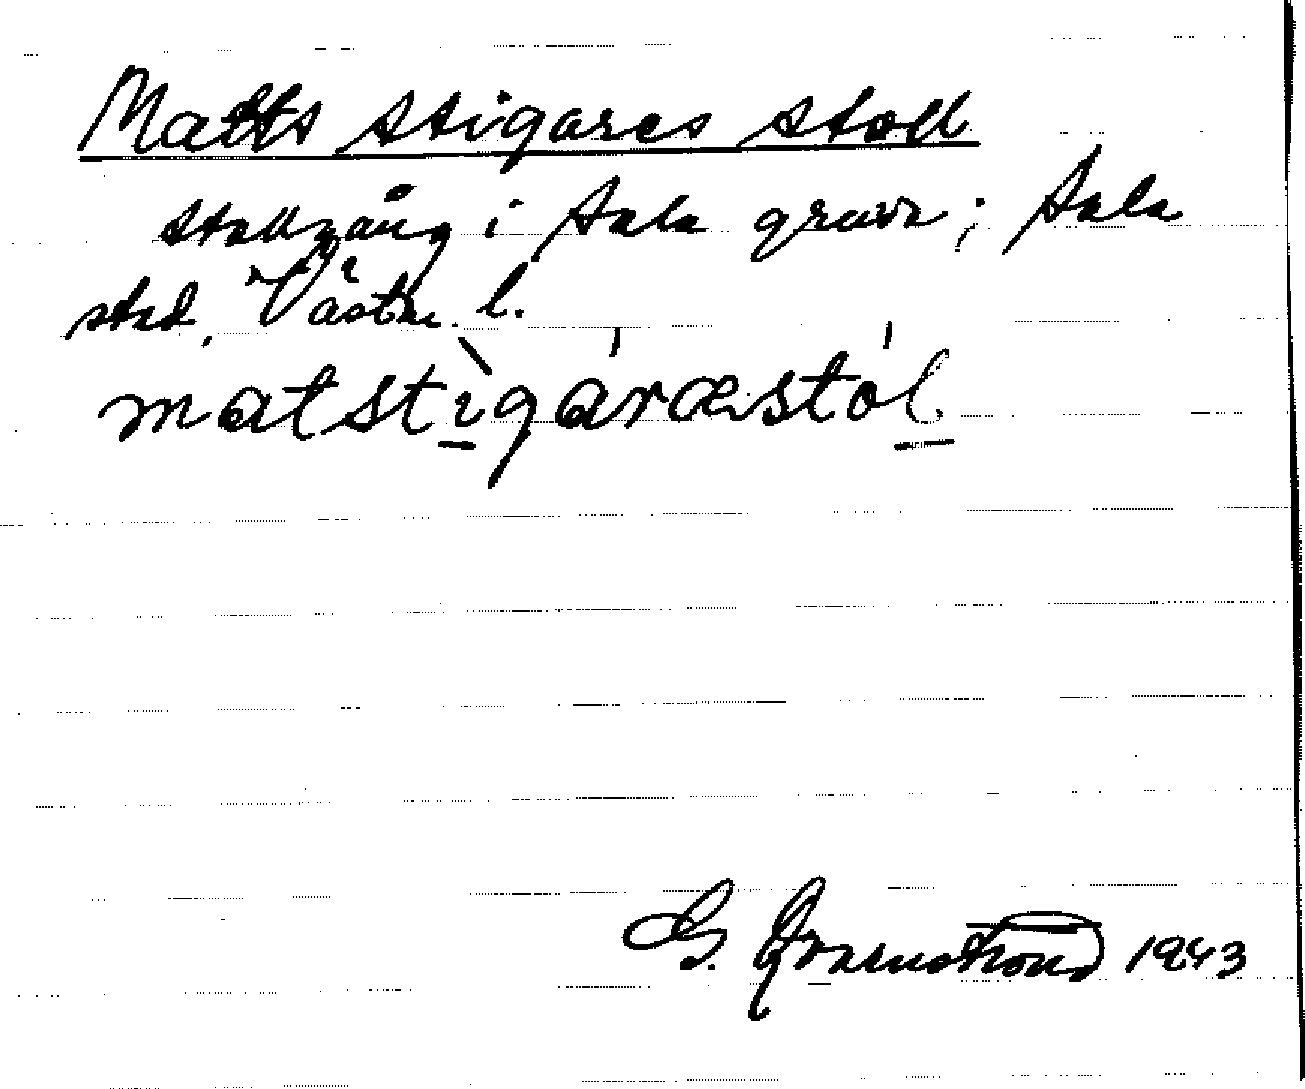 Matts stigares stoll
stollgång i Sala gruva; Sala
stad, Västm. l.
matstìgáræstól
G. Granström 1943